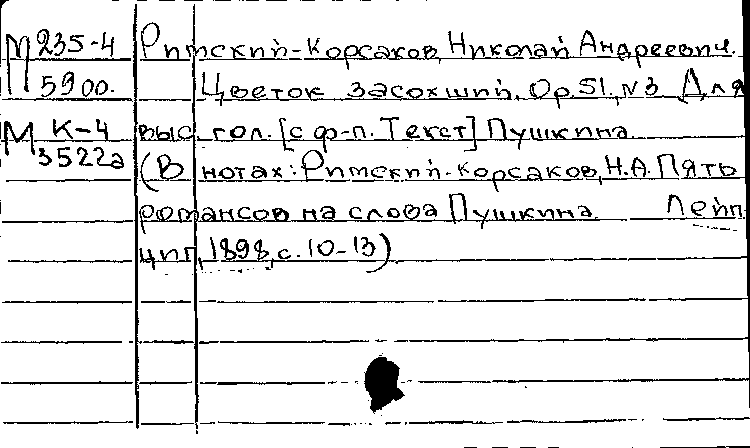 М 235-4 Римский-Корсаков, Николай Андреевич.
5900. Цветок засохший, Op.51, №3 Для
М К-4 выс. гол. [с ф-п. Текст] Пушкина.
3522а (В нотах: Римский-Корсаков, Н.А. Пять
романсов на слова Пушкина. Лейп
циг, 1898, с. 10-13)